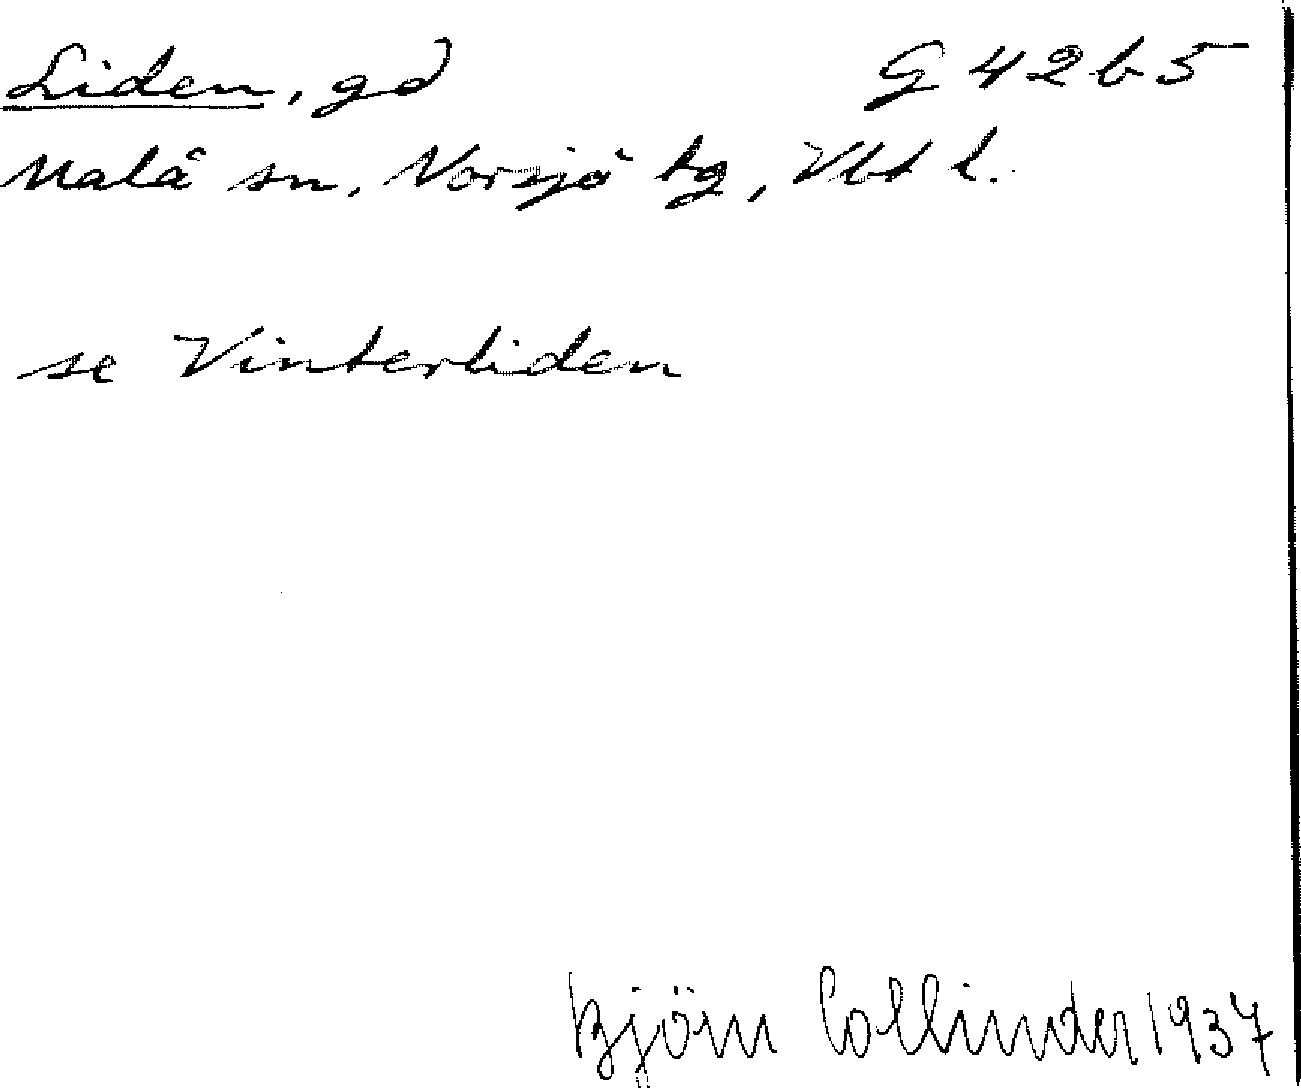 Liden, gd G 42 b 5
Malå sn, Norsjö tg, Vbt l.
se Vinterliden
Björn Collinder 1937